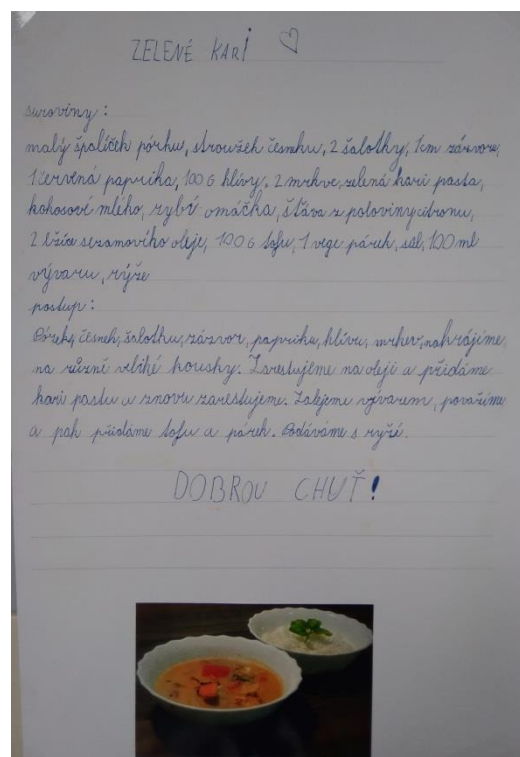 ZELENÉ KARI
suroviny:
malý špalíček pórku, stroužek česneku, 2 šalotky, 1cm zázvoru,
1 červená paprika, 100 G hlívy, 2 mrkve, zelená kari pasta,
kokosové mlého, rybí omáčka, šťáva z poloviny citronu,
2 lžíce sezamového oleje, 100 G tofu, 1 vege párek, sůl, 100 ml
vývaru, rýže
postup:
Pórek, česnek, šalotku, zázvor, papriku, hlívu, mrkev, nakrájíme
na různě veliké kousky. Zarestujeme na oleji a přidáme
kari pastu a znovu zarestujeme. Zalejeme vývarem, povaříme
a pak přidáme tofu a párek. Podáváme s rýží.
DOBROU CHUŤ!